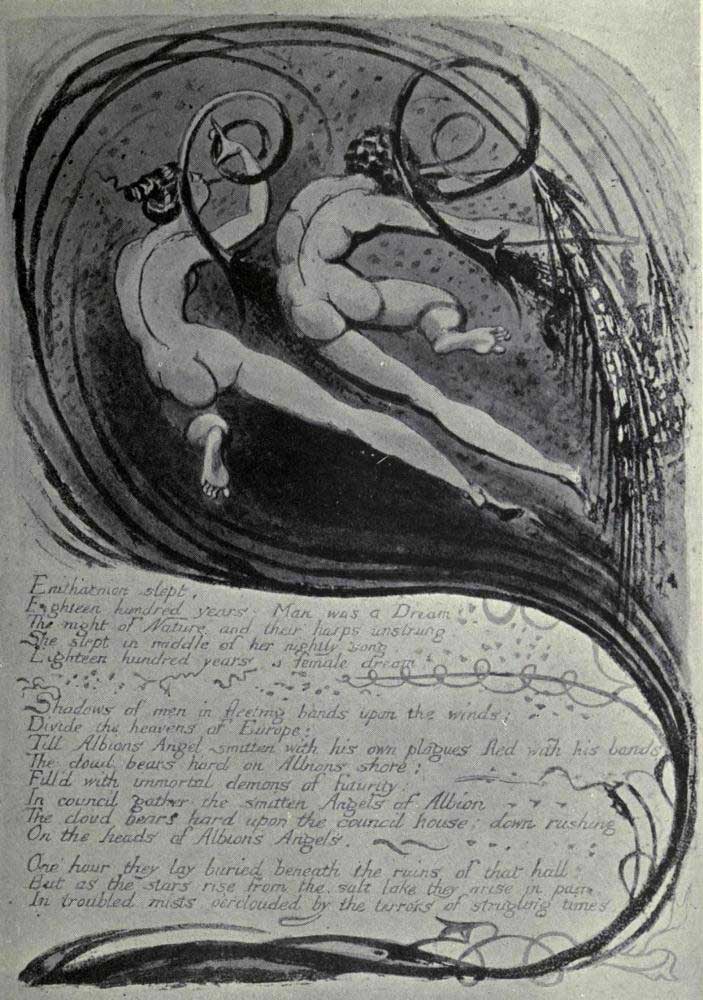 Enitharmon slept,
Eighteen hundred years: Man was a Dream
The night of Nature and their harps unstrung
She slept in middle of her nightly song
Eighteen hundred years, a female dream
Shadows of men in fleeting bands upon the winds:
Divide the heavens of Europe:
Till Albions Angel smitten with his own plagues fled with his bands
The cloud bears hard on Albions shore:
Filld with immortal demons of futurity:
In council gather the smitten Angels of Albion
The cloud bears hard upon the council house; down rushing
On the heads of Albions Angels.
One hour they lay buried beneath the ruins of that hall;
But as the stars rise from the salt lake they arise in pain
In troubled mists oerclouded by the terrors of strugling times